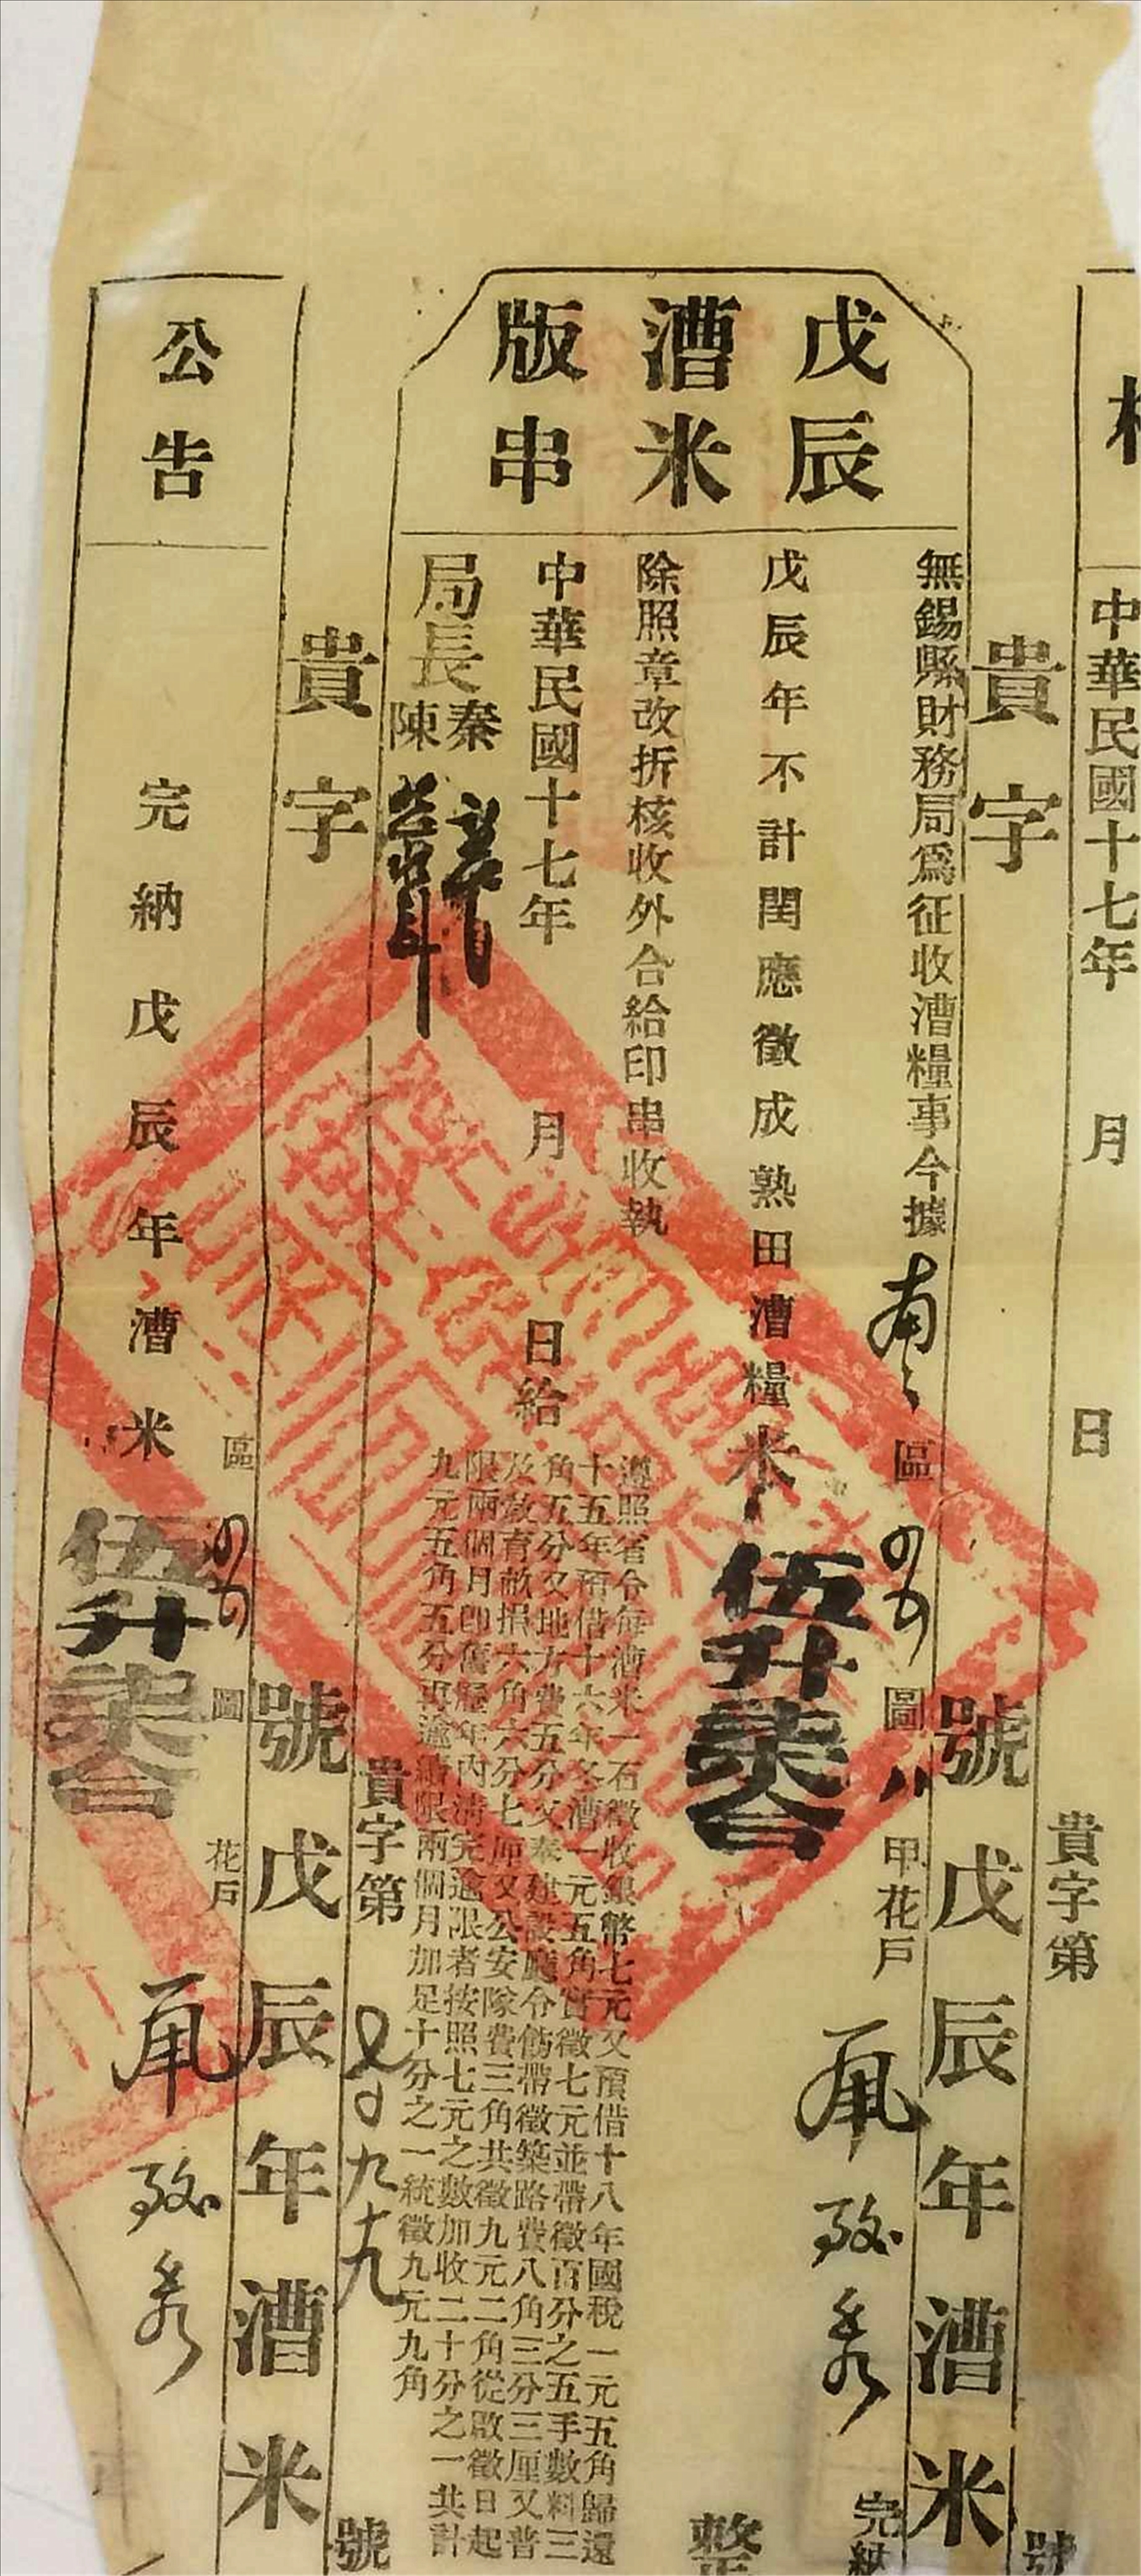 中華民國十七年 月 日
貴字第 號
貴字 號戊辰年漕米
戊辰
漕米
版串
無錫縣財務局爲征收漕糧事今據 區 圖 甲花戶 完納
戊辰年不計閏應徵成熟田漕糧米伍升柒合 整
除照章改折核收外合給印串收執
遵照省令每漕米一石徵收銀幣七元又預借十八年國稅一元五角歸還
十五年預借十六年冬漕一元五角實徵七元並帶徵百分之五手數料三
角五分又地方費五分又奉建設廳令飭帶徵築路費八角三分三厘又普
及教育畝捐六角六分七厘又公安隊費三角共徵九元二角從啟徵日起
限兩個月卽舊歷年內清完逾限者按照七元之數加收二十分之一共計
九元五角五分再逾續限兩個月加足十分之一統徵九元九角
中華民國十七年 月 日給
局長秦
陳
貴字第 號
貴字 號戊辰年漕米
區 圖 花戶
公告
完納戊辰年漕米伍升柒合